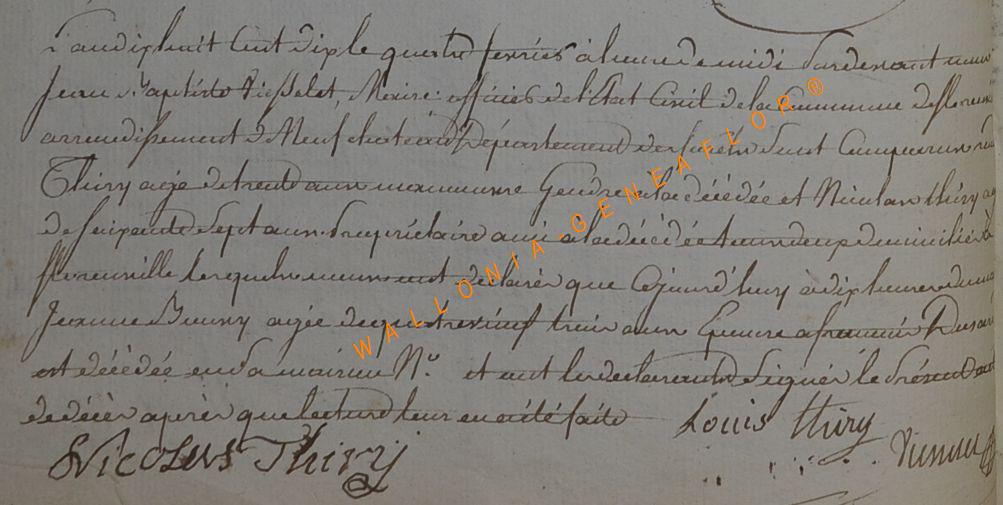 L'an dix huit Cent dix le quatre fevrier à l'heure de midi Pardevant nous
Jean Baptiste Maire officier de l'Etat Civil de la Commune de florenv
arrondissement de Neufchateau Département des forets Sont Comparus
Thiry agé de trente ans Gendre a la décédée et Nicolas thiry ag
de soixante Sept ans Propriétaire ami a la décédée tous deux domiciliés à
florenville lesquels nous ont declarés que Cejourd'huy à dix heures du ma
Jeanne agée de quatrevingt trois ans Epouse a
est décédée en Sa maison N.º et ont les declarants Signés le Présent acte
de décès après que lecture leur en a été faite Louis thiry
Nicolas Thiry
WALLONIA-GENEAFLOR®